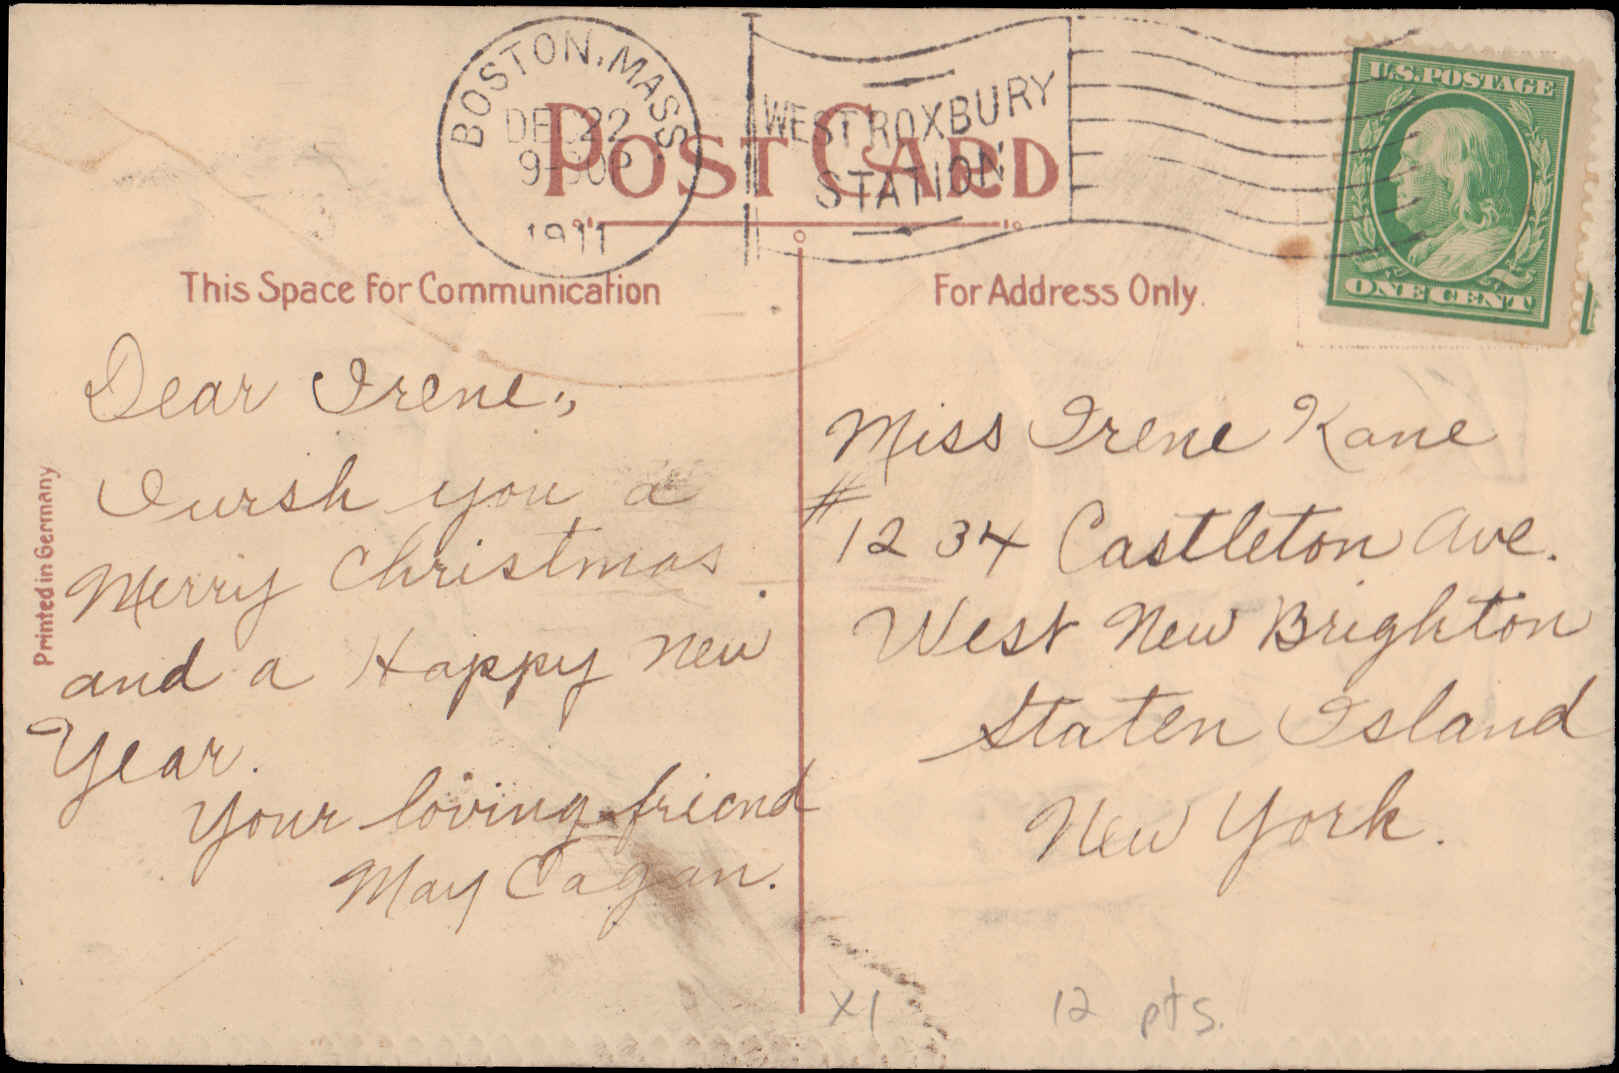 BOSTON, MASS
DEC 22
1911
WEST ROXBURY
STATION
U.S. POSTAGE
ONE CENT
POST CARD
This Space for Communication
For Address Only.
Printed in Germany
Dear Irene.,
I wish you a
Merry Christmas
and a Happy New
Year.
Your loving friend
May Cagan.
Miss Irene Kane
# 1234 Castleton Ave.
West New Brighton
Staten Island
New York.
X1
12 pts.